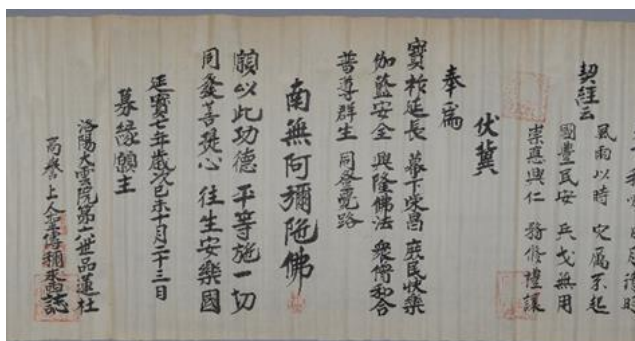 契經云
風雨以時 災厲不起
國豐民安 兵戈無用
崇悳興仁 務修禮讓
伏冀
奉為
寶祚延長 幕下榮昌 庶民快樂
伽藍安全 興隆佛法 衆僧和合
普導群生 同登覺路
南無阿彌陁佛
願以此功德 平等施一切
同發菩提心 往生安樂國
延寶七年歲次己未十月二十三日
募緣願主
洛陽大雲院第六世品蓮社
上人
誌